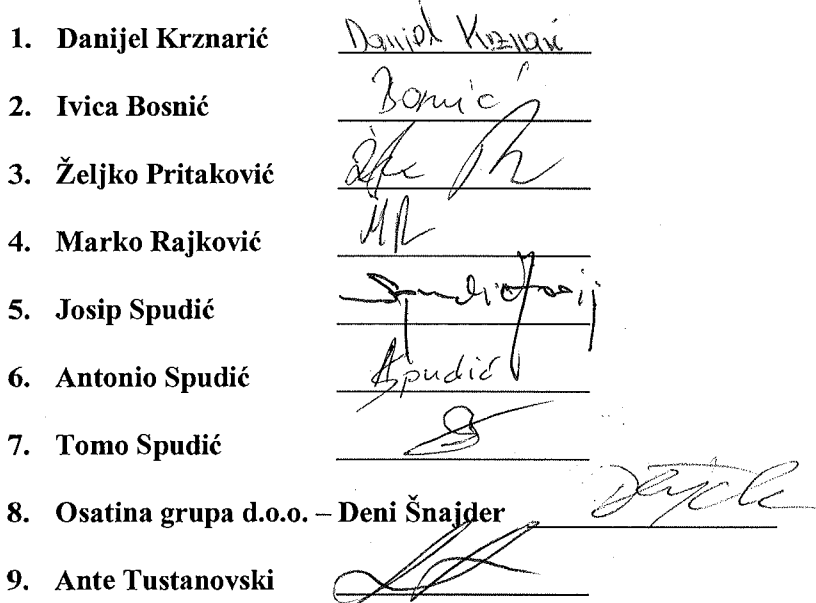 1. Danijel Krznarić Danijel Krznarić
2. Ivica Bosnić Bosnić
3. Željko Pritaković
4. Marko Rajković MR
5. Josip Spudić Spudić Josip
6. Antonio Spudić ASpudić
7. Tomo Spudić
8. Osatina grupa d.o.o. – Deni Šnajder
9. Ante Tustanovski